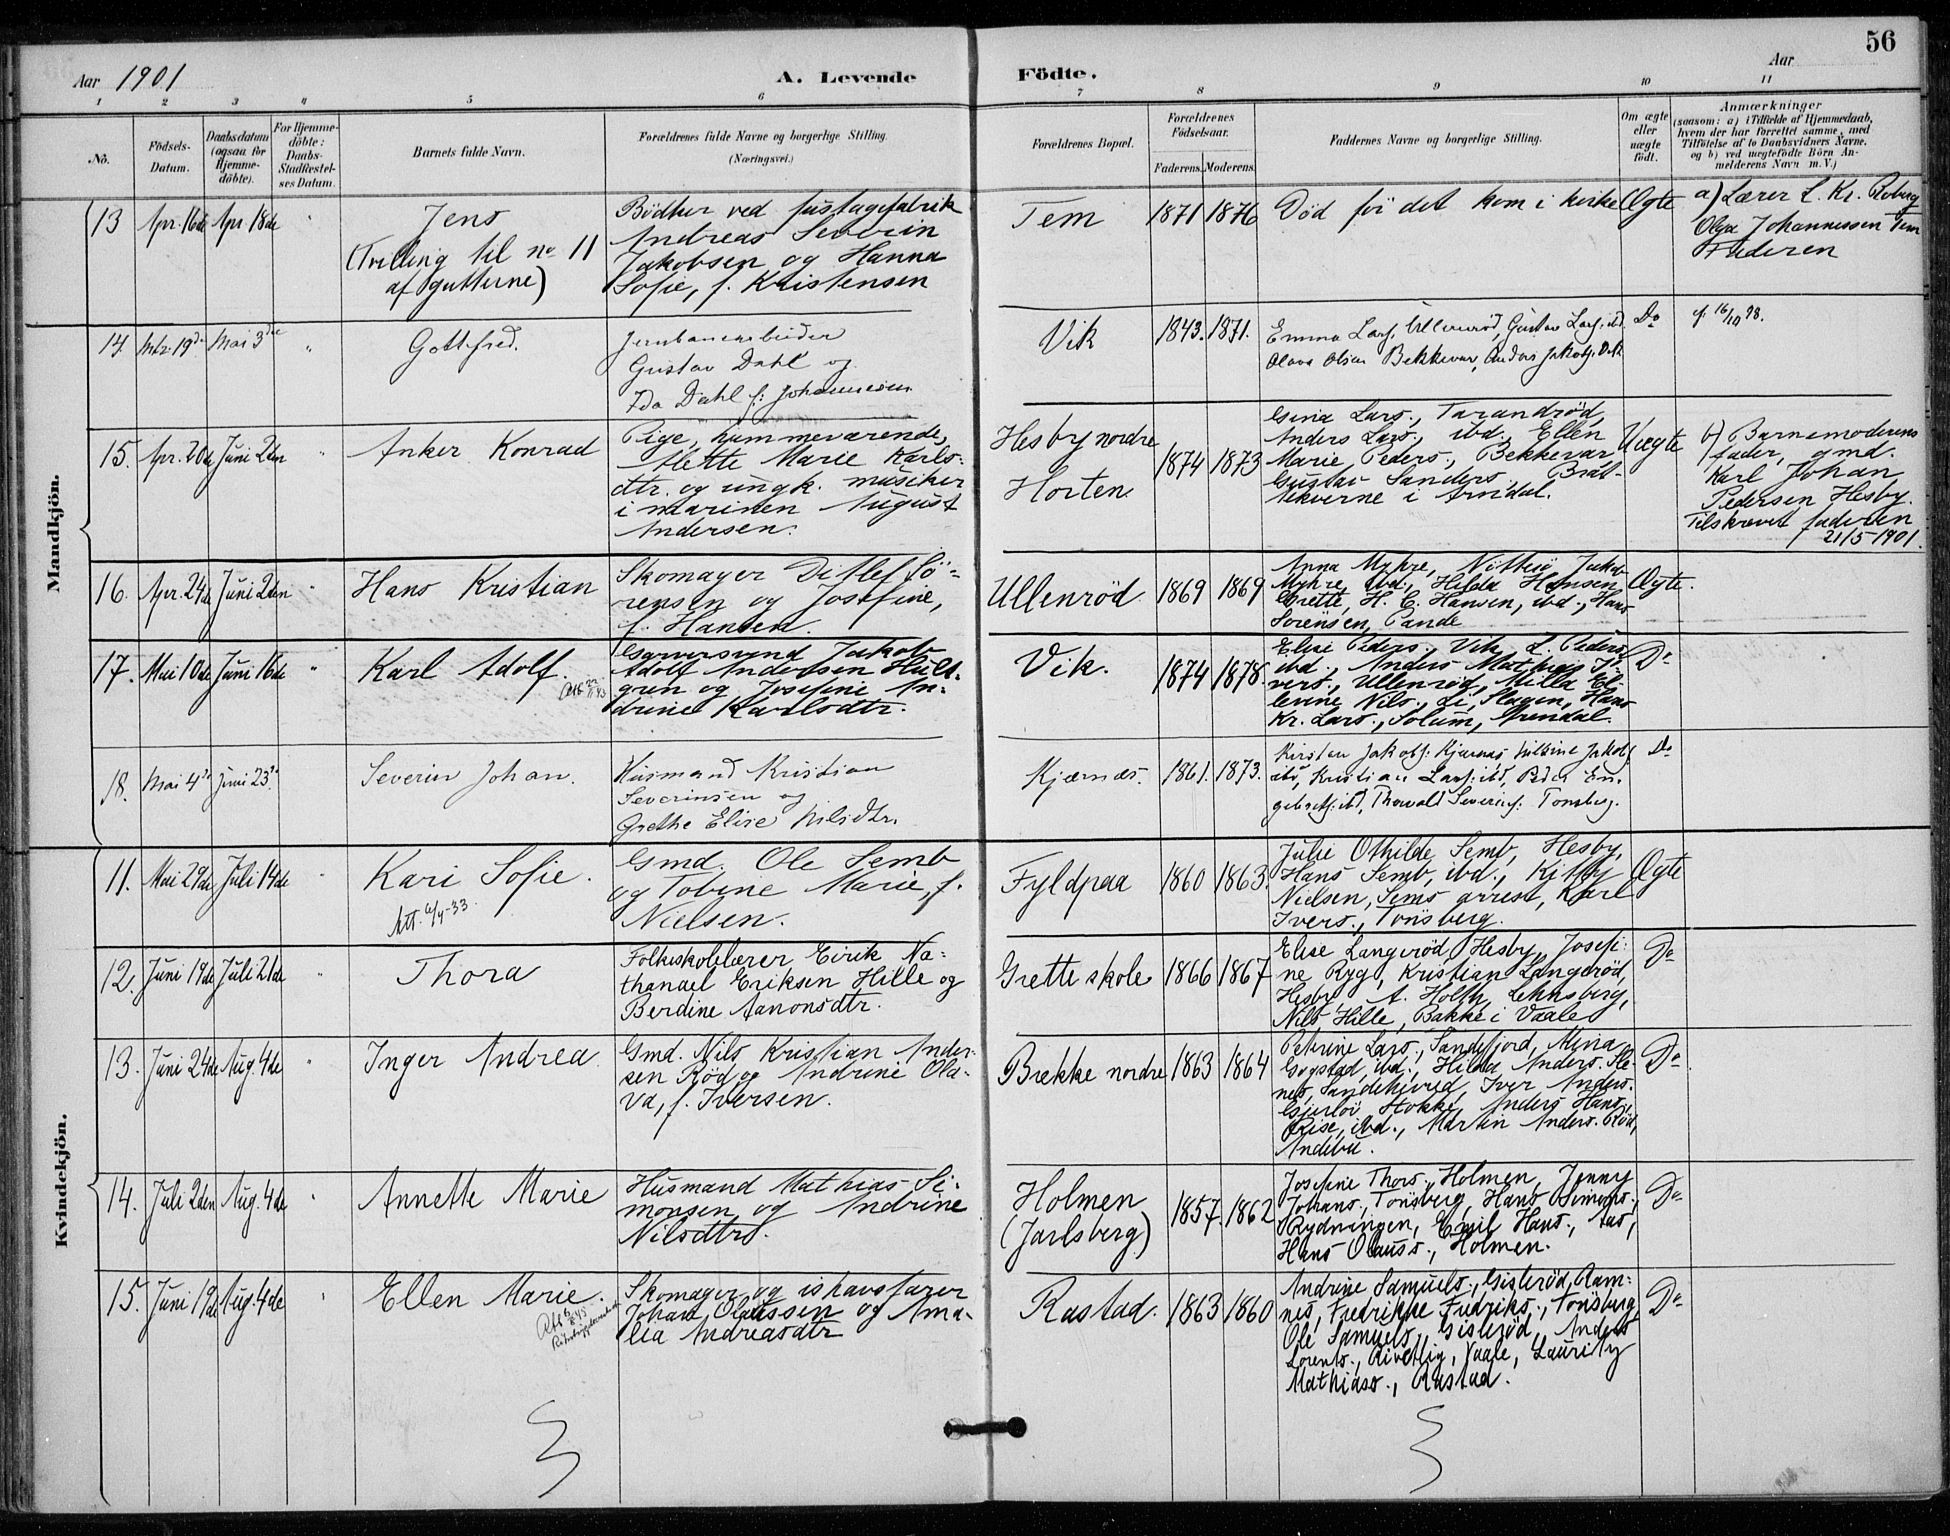 56
Aar 1901
A. Levende Födte.
Aar
1 2 3 4 5 6 7 8 9 10 11
No.
Födsels-Datum.
Daabsdatum (ogsaa for Hjemme-döbte).
For Hjemme-döbte: Daabs-Stadfæstel-ses Datum.
Barnets fulde Navn.
Forældrenes fulde Navne og borgerlige Stilling.
(Næringsvei.)
Forældrenes Bopæl.
Forældrenes Födselsaar.
Faderens. Moderens.
Faddernes Navne og borgerlige Stilling.
Om ægte eller uægte födt.
Anmærkninger
(saasom: a) i Tilfælde af Hjemmedaab,
hvem der har forrettet samme, med
Tilföielse af to Daabsvidners Navne,
og b) ved uægtefödte Börn An-
melderens Navn m.V.)
Mandkjön.
13 Apr. 16de Apr 18de "
Jens
(Tvilling til no 11
af gutterne)
Bödker ved fustagefabrik
Andreas Severin
Jakobsen og Hanna
Sofie, f. Kristensen
Tem 1871 1876
Död för det kom i kirke
Ægte
a) Lærer L. Kr. Roberg
Olga Johannessen Tem
Faderen
14. 19de Mai 3die "
Gottfred.
Jernbanearbeider
Gustav Dahl og
Ida Dahl f: Johannesen
Vik 1843. 1871.
Emma Larss. Ullenröd, Gustav Larss. ibd
Olava Olsen Bekkevar, Anders Jakobs. Vik
Do
16/10 98.
15. Apr. 20de Juni 2den "
Anker Konrad
Pige, hjemmeværende,
Alette Marie Karls-
dtr. og ungk. musiker
i marinen August
Andersen.
Hesby nordre
Horten.
1874 1873
Gina Lars., Tarandröd,
Anders Lars., ibd., Ellen
Marie Peders., Bekkevar
Gustav Sanders., Bræt-
tekverne i Arndal.
Uægte
b) Barnemoderens
fader, gmd.
Karl Johan
Pedersen Hesby.
Tilskrevet faderen
21/5-1901.
16. Apr. 24de Juni 2den "
Hans Kristian
Skomager Ditlef Sö-
rensen og Josefine,
f. Hansen.
Ullenröd 1869 1869
Anna Myhre, Nötterö, Jakob
Myhre, ibd., Hilda Hansen
Grette, H. C. Hansen, ibd., Hans
Sörensen, Pande
Ægte.
17. Mai 10de Juni 16de "
Karl Adolf.
Garversvend Jakob
Adolf Andersen Hult-
gren og Josefine An-
drine Karlsdtr.
Vik. 1874 1878.
Elise Peders., Vik, L. Peders.
ibd., Anders Mathias I-
vers., Ullenröd, Milla El-
levine Nils., Li, Slagen, Hans
Kr. Lars., Solum, Arendal.
Do
18. Mai 4de Juni 23de
Severin Johan.
Husmand Kristian
Severinsen og
Grethe Elise Nilsdtr.
Kjærnæs. 1861. 1873.
Kirsten Jakobs. Kjærnæs, Nilsine Jakobs
ibd, Kristian Larss. ibd, Peder En-
gebrets. ibd, Thorvald Severins. Tönsberg.
Do
Kvindekjön.
11. Mai 29de Juli 14de "
Kari Sofie.
Att. 6/4-33.
Gmd. Ole Semb
og Tobine Marie, f.
Nielsen.
Fyldpaa 1860 1863.
Julie Othilde Semb, Hesby,
Hans Semb, ibd., Kitty
Nielsen, Sems arrest, Karl
Ivers., Tönsberg.
Ægte
12. Juni 19de Juli 21de "
Thora
Folkeskolelærer Eirik Na-
thanael Eriksen Hille og
Berdine Aanonsdtr.
Grette skole 1866 1867
Elise Langeröd, Hesby, Josefi-
ne Ryg, Kristian Langeröd,
Hesby, A. Holth, Lehnsberg,
Nils Hille, Bakke i Vaale
Do
13. Juni 24de Aug. 4de "
Inger Andrea
Gmd. Nils Kristian Ander-
sen Röd og Andrine Ola-
va, f. Iversen.
Brekke nordre 1863 1864
Petrine Lars., Sandefjord, Mina
Gogstad, ibd., Hilda Anders. Ste-
nes, Sandeherred, Iver Anders.
Gjerlöi, Stokke, Anders Hans.,
Rise, ibd., Martin Anders. Röd,
Andebu.
Do
14. Juli 2den Aug. 4de "
Annette Marie
Husmand Mathias Si-
monsen og Andrine
Nilsdtr.
Holmen
(Jarlsberg)
1857. 1862
Josefine Thors., Holmen, Jenny
Johans., Tönsberg, Hans Simons.,
Rydningen, Emil Hans., Aas,
Hans Olauss., Holmen.
Do
15. Juni 19de Aug. 4de
Ellen Marie.
Skomager og ishavsfarer
Johan Olaussen og Ama-
lia Andreasdtr
Rastad. 1863 1860
Andrine Samuels., Gisleröd, Ram-
nes, Fredrikke Fredriks., Tönsberg,
Ole Samuels., Gisleröd, Anders
Lorents., Vaale, Lauritz
Mathiass., Rastad.
Do